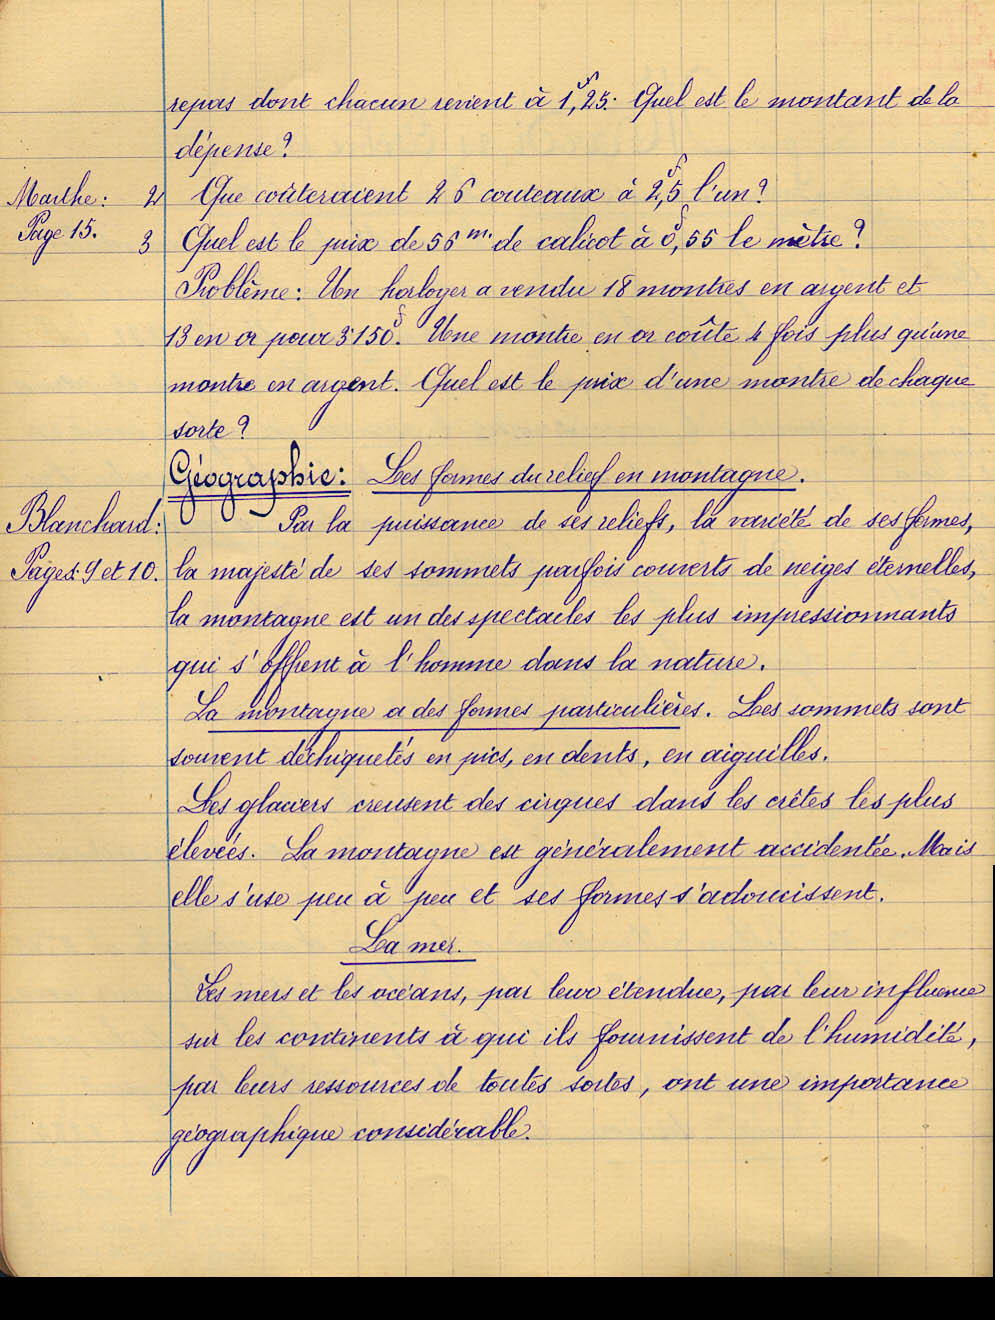 repas dont chacun revient à 1,f25. Quel est le montant de la
dépense ?
Marthe : 2 Que coûteraient 26 couteaux à 2,f5 l'un ?
Page 15.
3 Quel est le prix de 56 m. de calicot à 0,f55 le mètre ?
Problème : Un horloger a vendu 18 montres en argent et
13 en or pour 3150f. Une montre en or coûte 4 fois plus qu'une
montre en argent. Quel est le prix d'une montre de chaque
sorte ?
Géographie : Les formes du relief en montagne.
Blanchard : Par la puissance de ses reliefs, la variété de ses formes,
Pages : 9 et 10. la majesté de ses sommets parfois couverts de neiges éternelles,
la montagne est un des spectacles les plus impressionnants
qui s'offrent à l'homme dans la nature.
La montagne a des formes particulières. Les sommets sont
souvent déchiquetés en pics, en dents, en aiguilles.
Les glaciers creusent des cirques dans les crêtes les plus
élevées. La montagne est généralement accidentée. Mais
elle s'use peu à peu et ses formes s'adoucissent.
La mer.
Les mers et les océans, par leur étendue, par leur influence
sur les continents à qui ils fournissent de l'humidité,
par leurs ressources de toutes sortes, ont une importance
géographique considérable.